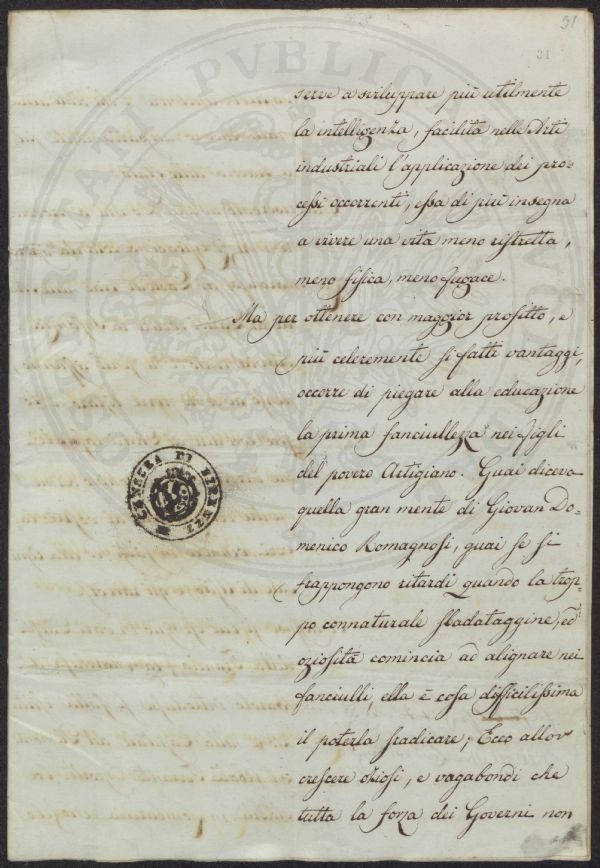 31
31
serve a sviluppare più utilmente
la intelligenza, facilita nelle Arti
industriali l'applicazione dei pro-
cessi occorrenti, essa di più insegna
a vivere una vita meno ristretta,
meno fisica, meno fugace.
Ma per ottenere con maggior profitto, e
più celeremente si fatti vantaggi,
occorre di piegare alla educazione
la prima fanciullezza nei figli
del povero Artigiano. Guai diceva
quella gran mente di Giovan Do-
menico Romagnosi, guai se si
frappongono ritardi quando la trop-
po connaturale sbadataggine, ed
oziosità comincia ad alignare nei
fanciulli, ella è cosa difficilissima
il poterla sradicare; Ecco allor
crescere oziosi, e vagabondi che
tutta la forza dei Governi non
CAMERA DI FIRENZE
PVBLIC